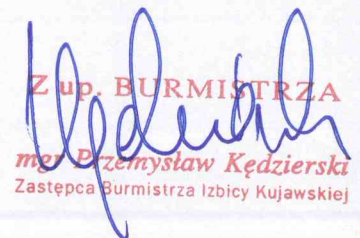 Z up. BURMISTRZA
mgr Przemysław Kędzierski
Zastępca Burmistrza Izbicy Kujawskiej